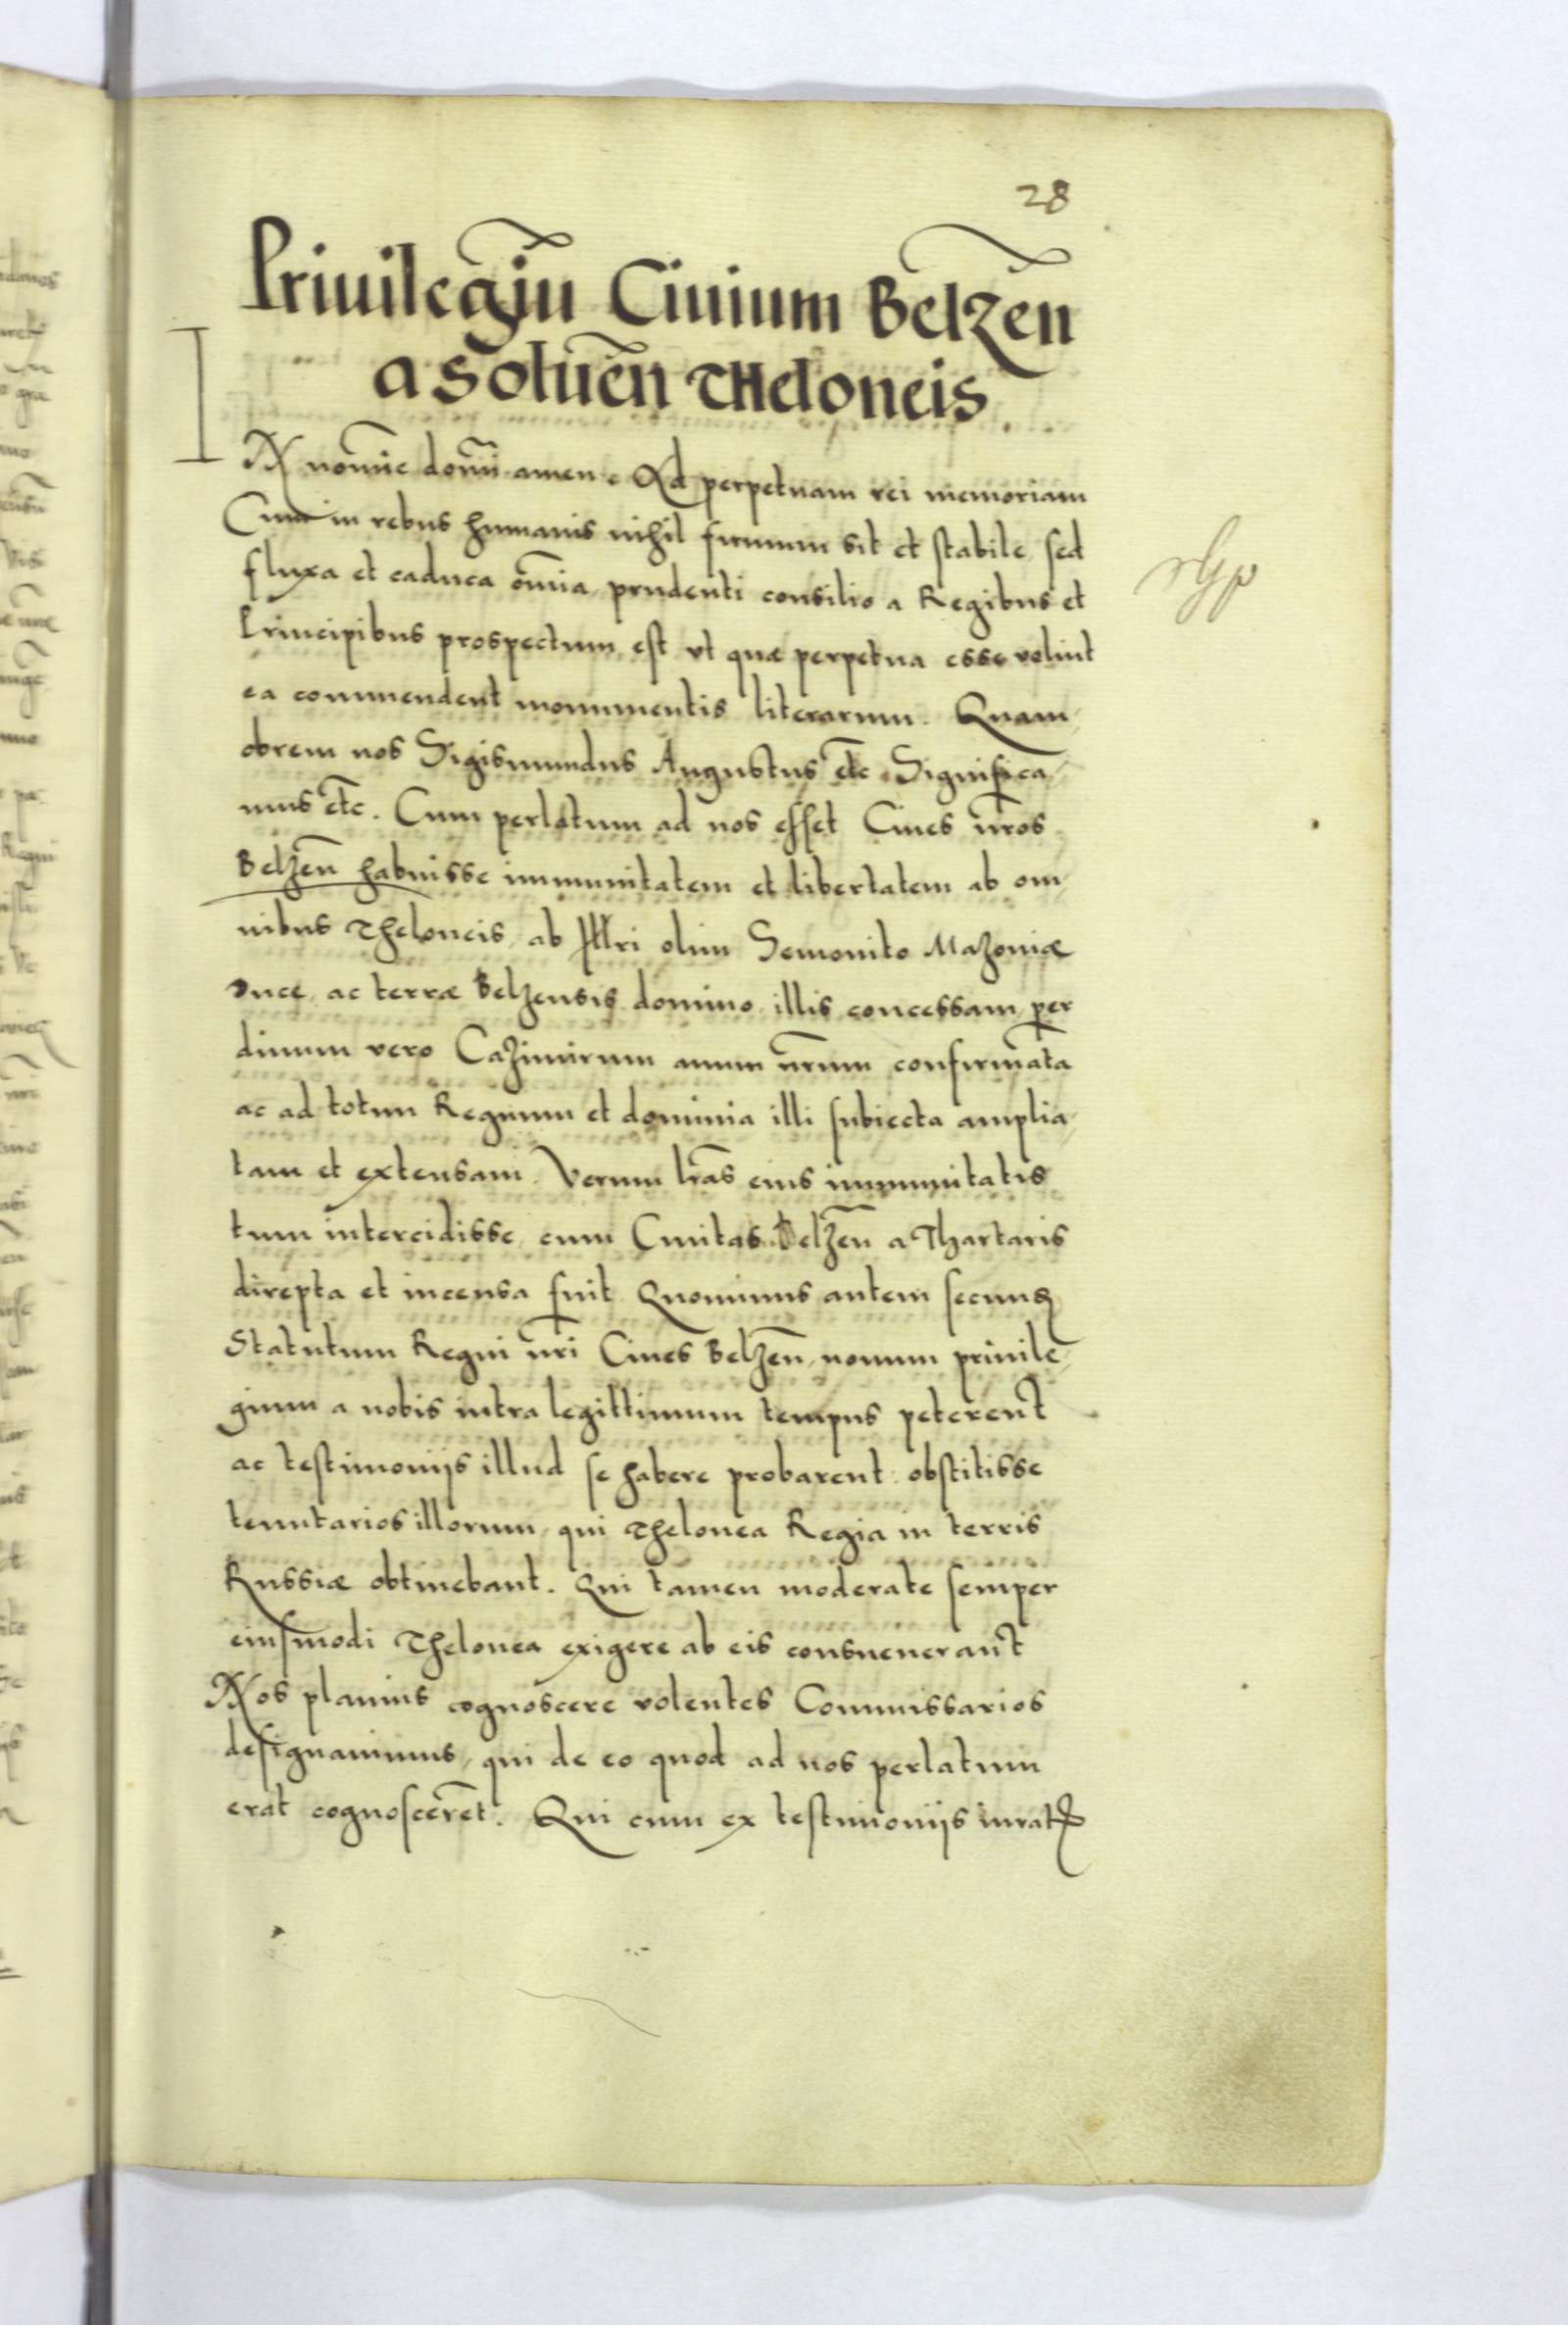 28
Priuilegiũ Ciuium Belzeñ
a Solueñ Theloneis
IN nomĩe domĩ amen. Ad perpetuam rei memoriam
Cum in rebus humanis nihil firmum sit et stabile, sed
fluxa et caduca om̃ia, prudenti consilio a Regibus et
Principibus prospectum est vt quæ perpetua esse volunt
ea commendent monumentis literarum. Quam
obrem nos Sigismundus Augustus etc Significa-
mus etc. Cum perlatum ad nos esset Ciues nr̃os
Belzeñ habuisse immunitatem et libertatem ab om-
nibus Theloneis, ab Illri olim Semouito Mazouiæ
Duce, ac terræ Belzensis domino illis concessam, per
diuum vero Cazimirum auum nr̃um confirmãta
ac ad totum Regnum et dominia illi subiecta amplia-
tam et extensam. Verum lr̃as eius immunitatis
tum intercidisse, cum Ciuitas Belzeñ a Thartaris
direpta et incensa fuit. Quominus autem secunđ
Statutum Regni nr̃i Ciues Belzeñ, nouum priuile-
gium a nobis intra legittimum tempus peterent
ac testimonijs illud se habere probarent: obstitisse
tenutarios illorum, qui Thelonea Regia in terris
Russiæ obtinebant. Qui tamen moderate semper
eiusmodi Thelonea exigere ab eis consueuerant
Nos planius cognoscere volentes Commissarios
designauimus, qui de eo quod ad nos perlatum
erat cognoscerẽt. Qui cum ex testimonijs iuratꝝ